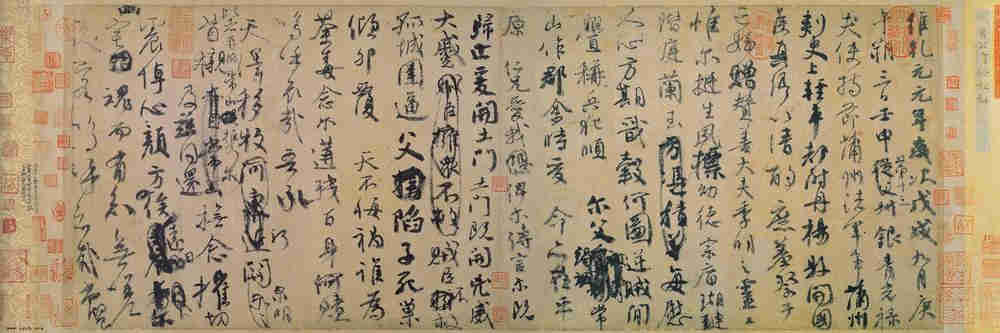 維乾元元年歲次戊戌九月庚
午朔三日壬申第十三叔從父銀青光祿
夫使持節蒲州諸軍事蒲州
刺史上輕車都尉丹楊縣開國
侯真卿以清酌庶羞祭于
亡姪贈贊善大夫季明之靈曰
惟爾挺生夙標幼德宗廟瑚璉
階庭蘭玉方憑積善每慰
人心方期戩穀何圖逆賊閒
釁稱兵犯順爾父竭誠常
山作郡余時受命亦在平
原仁兄愛我俾爾傳言爾既
歸止爰開土門土門既開兇威
大蹙賊臣擁眾不救賊臣不救
孤城圍逼父擒陷子死巢
傾卵覆天不悔禍誰為
荼毒念爾遘殘百身何贖
嗚呼哀哉吾承
天澤移牧河東近河關泉明
比者再陷常山攜爾
首櫬及茲同還撫念摧切
震悼心顏方俟遠日卜爾
幽宅魂而有知無嗟
久客嗚呼哀哉尚饗